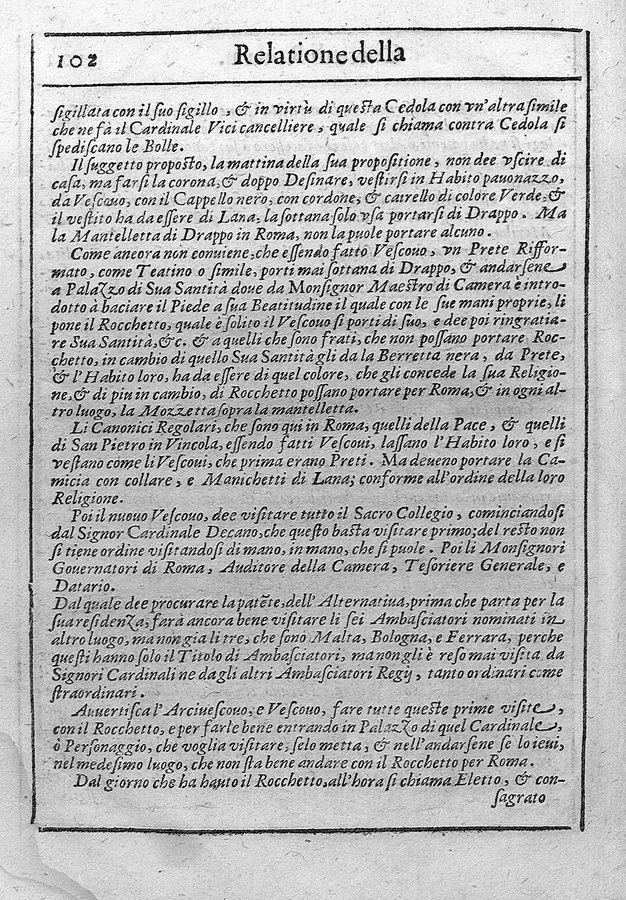 102 Relatione della
sigillata con il suo sigillo, & in virtù di questa Cedola con vn'altra simile
che ne fà il Cardinale Vicicancelliere, quale si chiama contra Cedola si
spediscano le Bolle.
Il suggetto proposto, la mattina della sua propositione, non dee vscire di
casa, ma farsi la corona, & doppo Desinare, vestirsi in Habito pauonazzo,
da Vescouo, con il Cappello nero, con cordone, & cairello di colore Verde, &
il vestito ha da essere di Lana, la sottana solo vsa portarsi di Drappo. Ma
la Mantelletta di Drappo in Roma, non la puole portare alcuno.
Come ancora non conuiene, che essendo fatto Vescouo, vn Prete Riffor-
mato, come Teatino o simile, porti mai sottana di Drappo, & andarsene
a Palazzo di Sua Santità doue da Monsignor Maestro di Camera è intro-
dotto à baciare il Piede a sua Beatitudine il quale con le sue mani proprie, li
pone il Rocchetto, quale è solito il Vescouo si porti di suo, e dee poi ringratia-
re Sua Santità, &c. & a quelli che sono frati, che non possano portare Roc-
chetto, in cambio di quello Sua Santità gli da la Berretta nera, da Prete,
& l'Habito loro, ha da essere di quel colore, che gli concede la sua Religio-
ne, & di piu in cambio, di Rocchetto possano portare per Roma, & in ogni al-
tro luogo, la Mozzetta sopra la mantelletta.
Li Canonici Regolari, che sono qui in Roma, quelli della Pace, & quelli
di San Pietro in Vincola, essendo fatti Vescoui, lassano l'Habito loro, e si
vestano come li Vescoui, che prima erano Preti. Ma deueno portare la Ca-
micia con collare, e Manichetti di Lana; conforme all'ordine della loro
Religione.
Poi il nuouo Vescouo, dee visitare tutto il Sacro Collegio, cominciandosi
dal Signor Cardinale Decano, che questo basta visitare primo; del resto non
si tiene ordine visitandosi di mano, in mano, che si puole. Poi li Monsignori
Gouernatori di Roma, Auditore della Camera, Tesoriere Generale, e
Datario.
Dal quale dee procurare la patẽte, dell'Alternatiua, prima che parta per la
sua residenza, farà ancora bene visitare li sei Ambasciatori nominati in
altro luogo, ma non gia li tre, che sono Malta, Bologna, e Ferrara, perche
questi hanno solo il Titolo di Ambasciatori, ma non gli è reso mai visita da
Signori Cardinali ne da gli altri Ambasciatori Regij, tanto ordinari come
straordinari.
Auuertisca l'Arciuescouo, e Vescouo, fare tutte queste prime visite,
con il Rocchetto, e per farle bene entrando in Palazzo di quel Cardinale,
ò Personaggio, che voglia visitare, se lo metta, & nell'andarsene se lo leui,
nel medesimo luogo, che non sta bene andare con il Rocchetto per Roma.
Dal giorno che ha hauto il Rocchetto, all'hora si chiama Eletto, & con-
sagrato